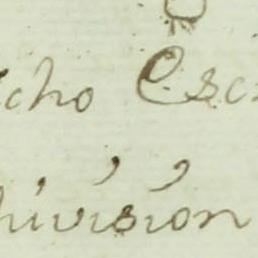 cho Esc
hivision